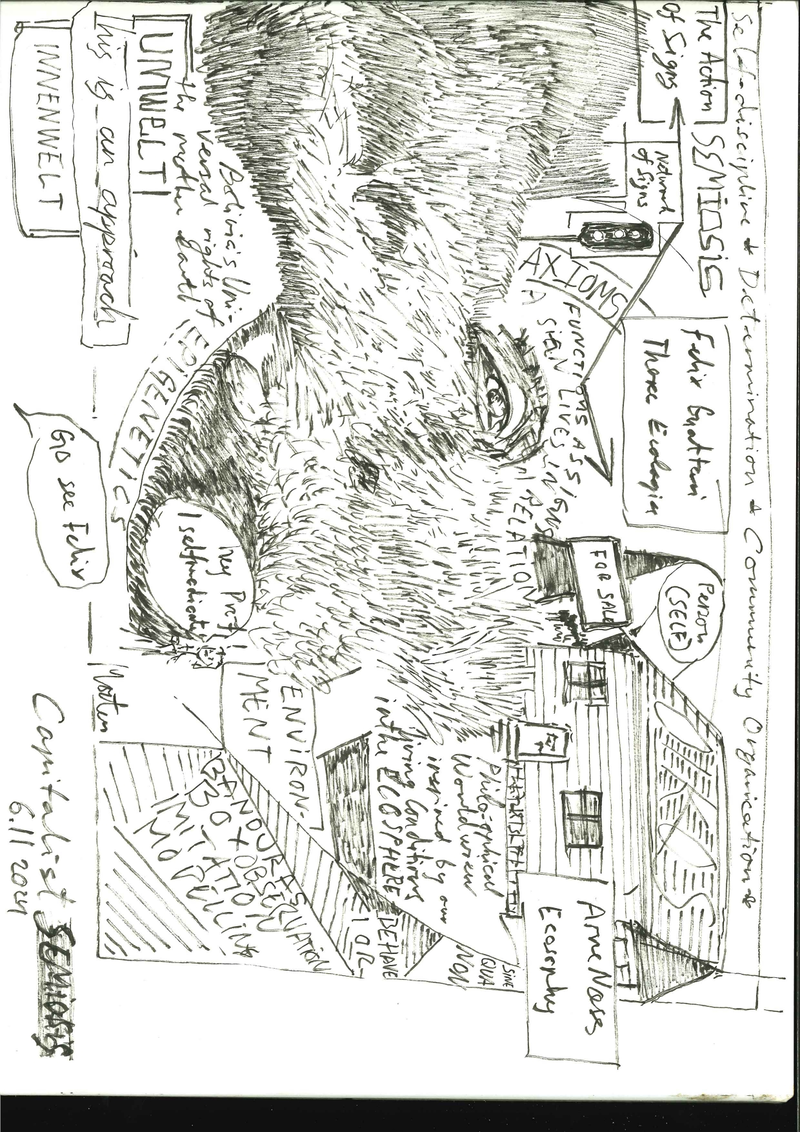 Self-discipline & Determination & Community Organication &
The Action
of Signs
SEMIOSIS
Network
of Signs
Felix Guattari
Three Ecologies
Person
(SELF)
FOR SALE
Arne Næss
Ecosophy
AXIOMS
FUNCTIONS AS SIGNS
A SIGN LIVES IN
RELATION
Philosophical
Worldview
inspired by our
living Conditions
in the ECOSPHERE
SINE
QUA
NON
BEHAVE
IOR
ENVIRON-
MENT
BANDURAS
BOBO + OBSERVATION
IMITATION
MODELLING
Bolivia's Uni-
versal rights of
the mother Earth
UMWELT!
This is an approach
INNENWELT
EPIGENETICS
Hey Prof
Go see Felix
Capitalist SEMIOSIS
6.11 2021